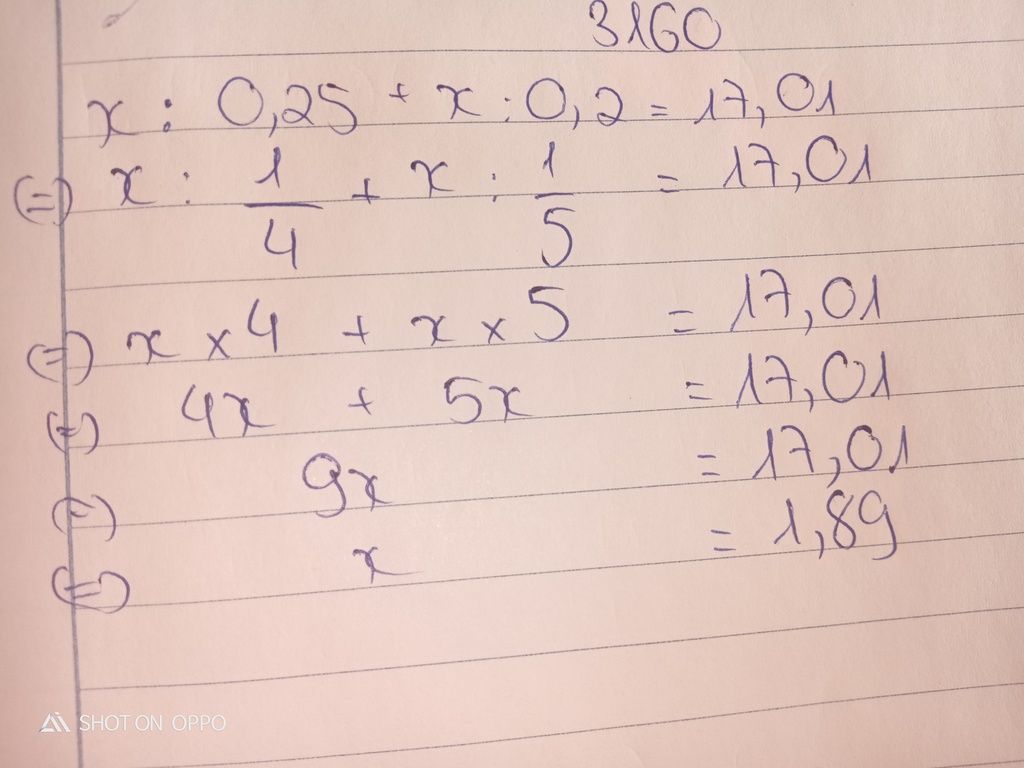 3160
x : 0,25 + x : 0,2 = 17,01
(=) x : 1/4 + x : 1/5 = 17,01
(=) x × 4 + x × 5 = 17,01
(=) 4x + 5x = 17,01
(=) 9x = 17,01
(=) x = 1,89
SHOT ON OPPO